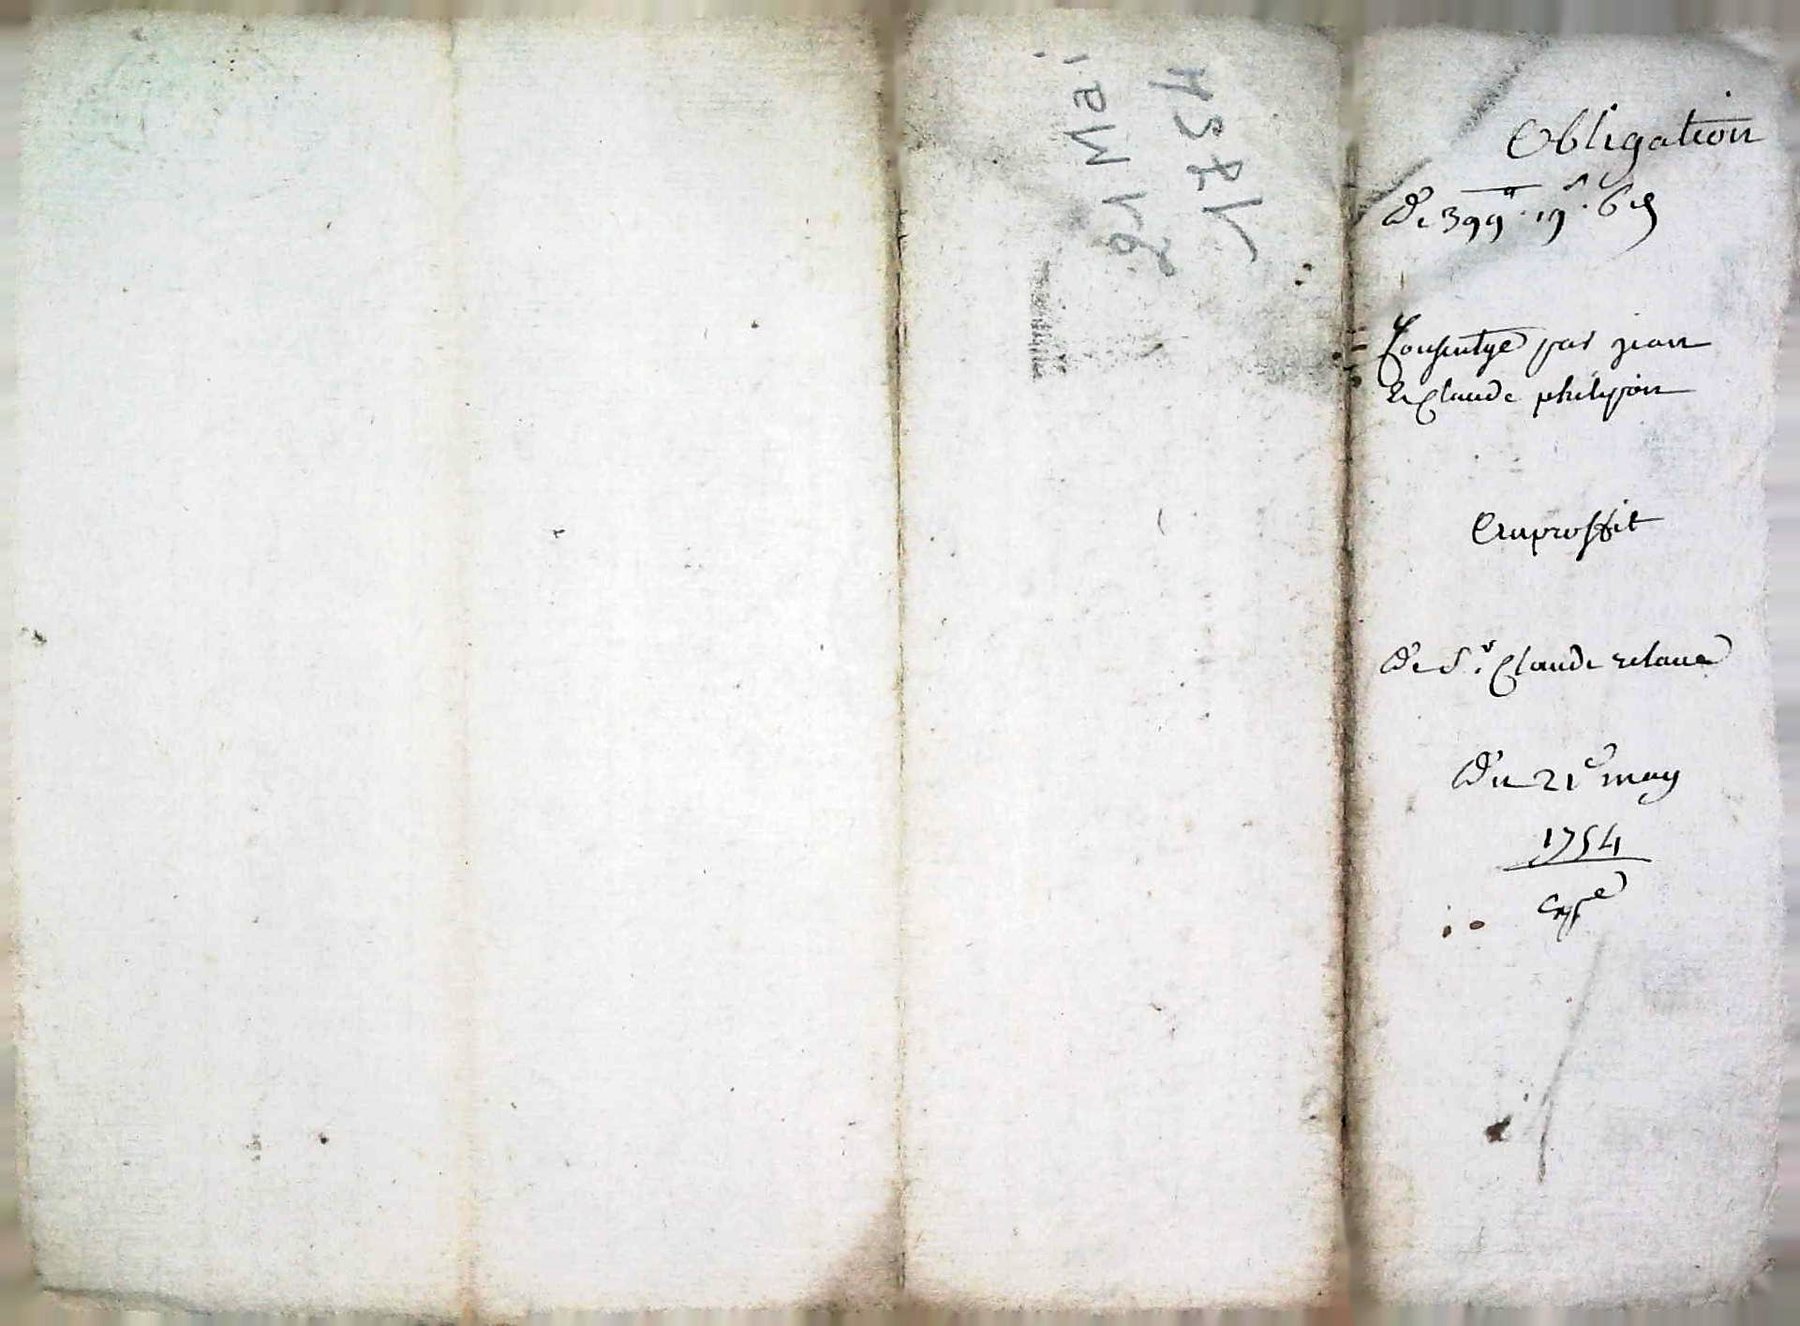 21 Mai
1754
Obligation
De 399ᵗᵗ 19ˢ 6 d
Consentye par jean
Et Claude philipon
Au proffit
De Sʳ Claude
Du 21ᵉ may
1754